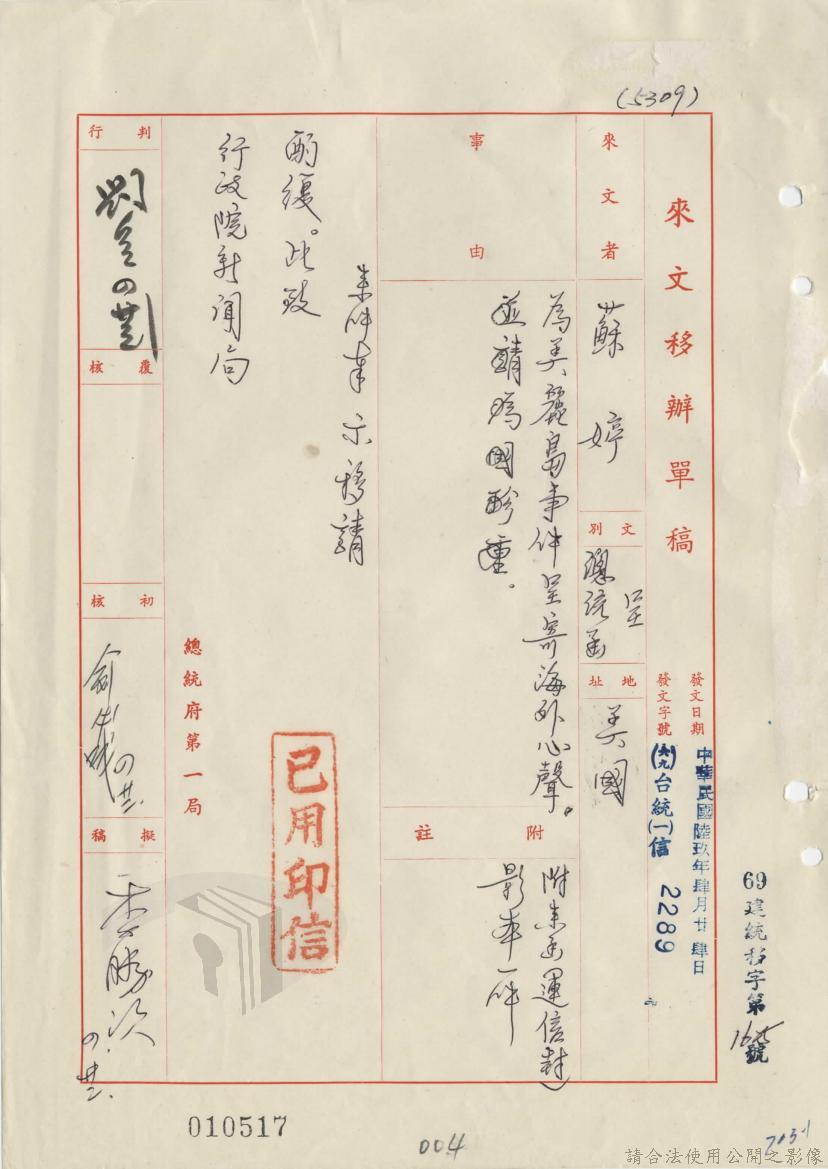 (5309)
來文移辦單稿
發文日期
中華民國陸玖年肆月廿肆日
發文字號
(六九)台統(一)信
2289
69建統移字第
號
來文者
蘇婷
文別
呈總統函
地址
美國
事由
為美麗島事件呈寄海外心聲。
並請為國珍重。
附註
附來函連信封
影本一件
來件奉示移請
酌復。此致
行政院新聞局
總統府第一局
已用印信
判行
覆核
初核
擬稿
010517
004
請合法使用公開之影像